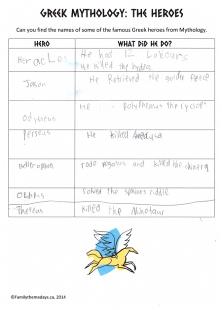 GREEK MYTHOLOGY: THE HEROES
Can you find the names of some of the famous Greek heroes from Mythology.
HERO WHAT DID HE DO?
Heracles He had 12 Labours
He killed the hydra
Jason He Retrieved the golden fleece
Odysseus He Polyphemus the cyclops
Perseus He killed Medusa
Bellerophon rode pegasus and killed the chimera
Solved the sphinxs riddle
Theseus killed the Minotaur
©Familythemedays.ca, 2014